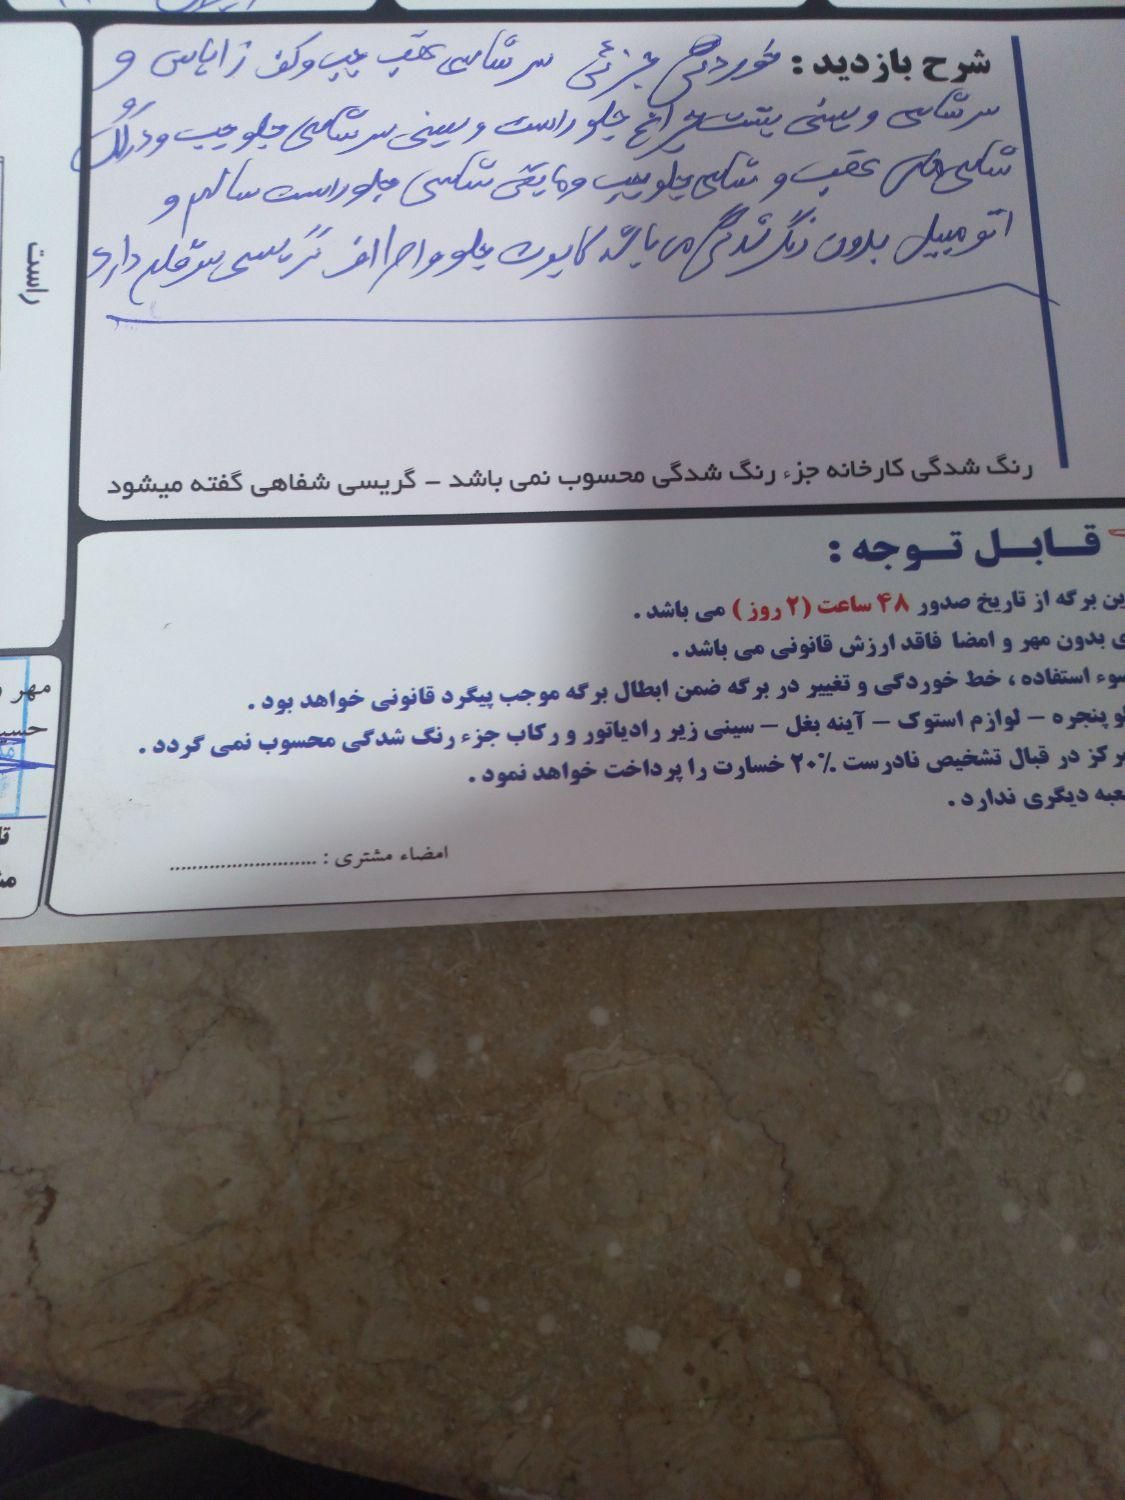 شرح بازدید : خوردگی جزئی سر شاسی عقب چپ و کف زاپاس و
سر شاسی و سینی پشت چراغ جلو راست و سینی سر شاسی جلو چپ و
شاسی های عقب و شاسی جلو چپ و مابقی شاسی جلو راست سالم و
اتومبیل بدون رنگ شدگی می باشد کاپوت جلو و اطراف گریسی دارد
رنگ شدگی کارخانه جزء رنگ شدگی محسوب نمی باشد - گریسی شفاهی گفته میشود
راست
قابل توجه :
این برگه از تاریخ صدور ۴۸ ساعت (۲ روز) می باشد .
بدون مهر و امضا فاقد ارزش قانونی می باشد .
سوء استفاده ، خط خوردگی و تغییر در برگه ضمن ابطال برگه موجب پیگرد قانونی خواهد بود .
پنجره - لوازم استوک - آینه بغل - سینی زیر رادیاتور و رکاب جزء رنگ شدگی محسوب نمی گردد .
مرکز در قبال تشخیص نادرست ۲۰٪ خسارت را پرداخت خواهد نمود .
شعبه دیگری ندارد .
امضاء مشتری : ..........................
مهر